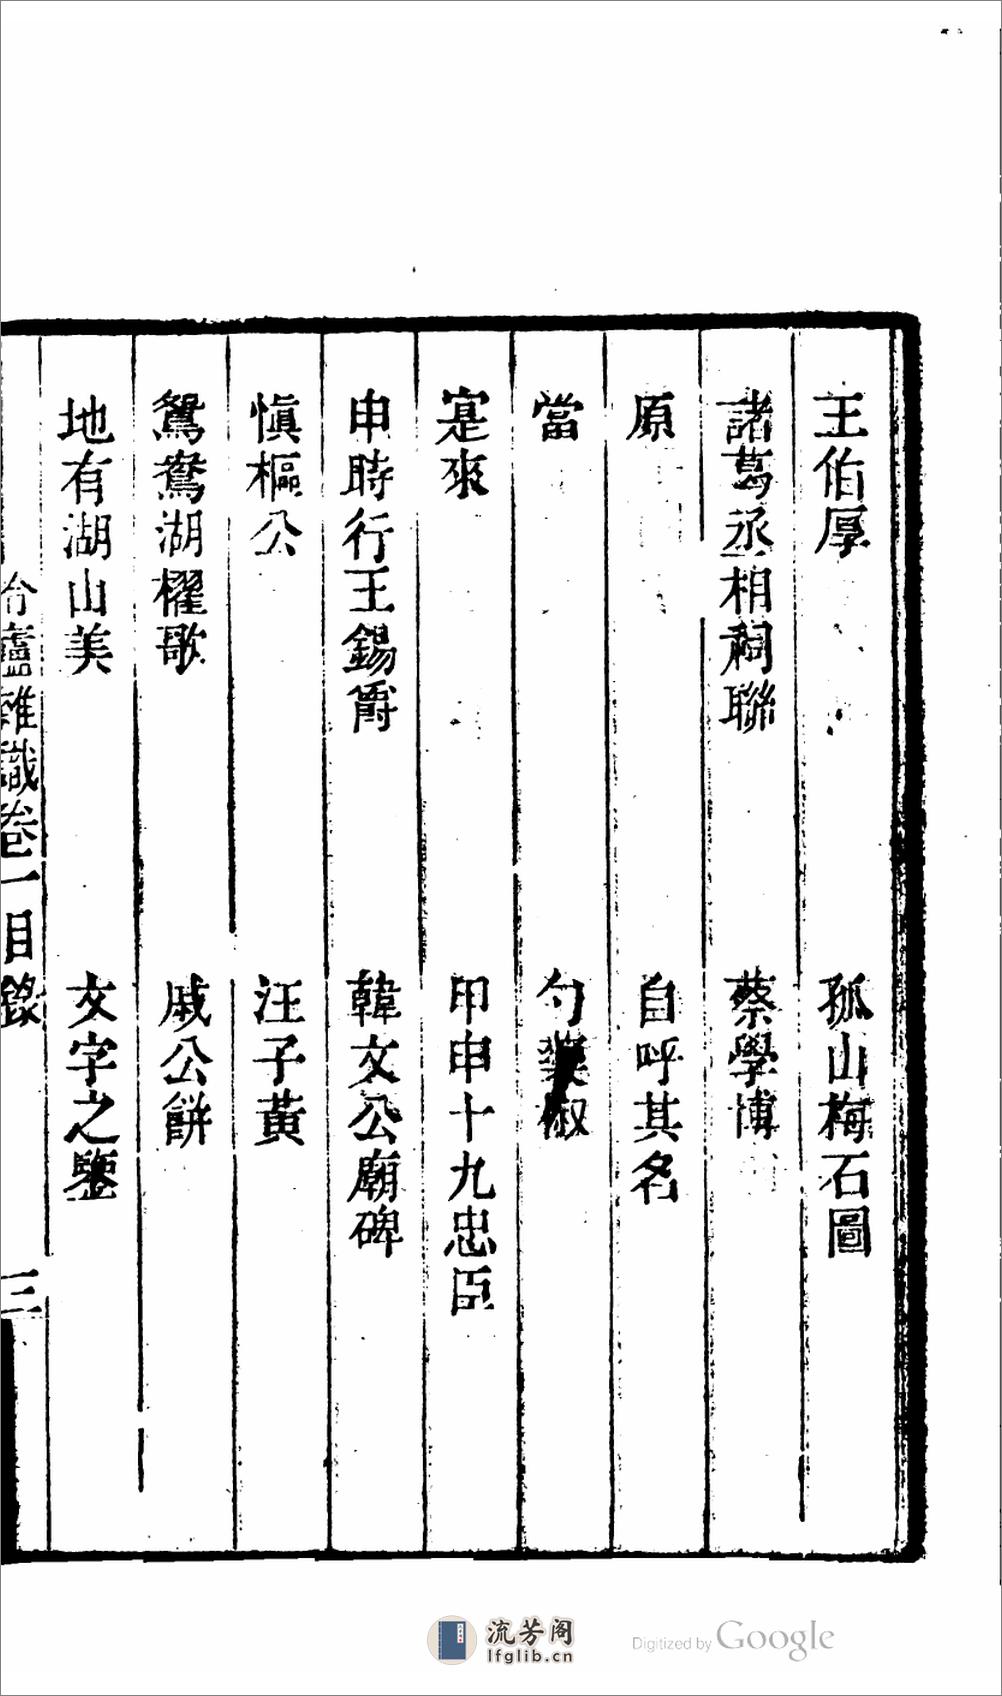 王伯厚　孤山梅石圖
諸葛丞相祠聯　蔡學博
原　自呼其名
當　勺藥椒
寔來　甲申十九忠臣
申時行王錫爵　韓文公廟碑
愼樞公　汪子黃
鴛鴦湖櫂歌　戚公餠
地有湖山美　文字之鑒
冷廬雜識卷一目錄　三
流芳阁
lfglib.cn
Digitized by Google